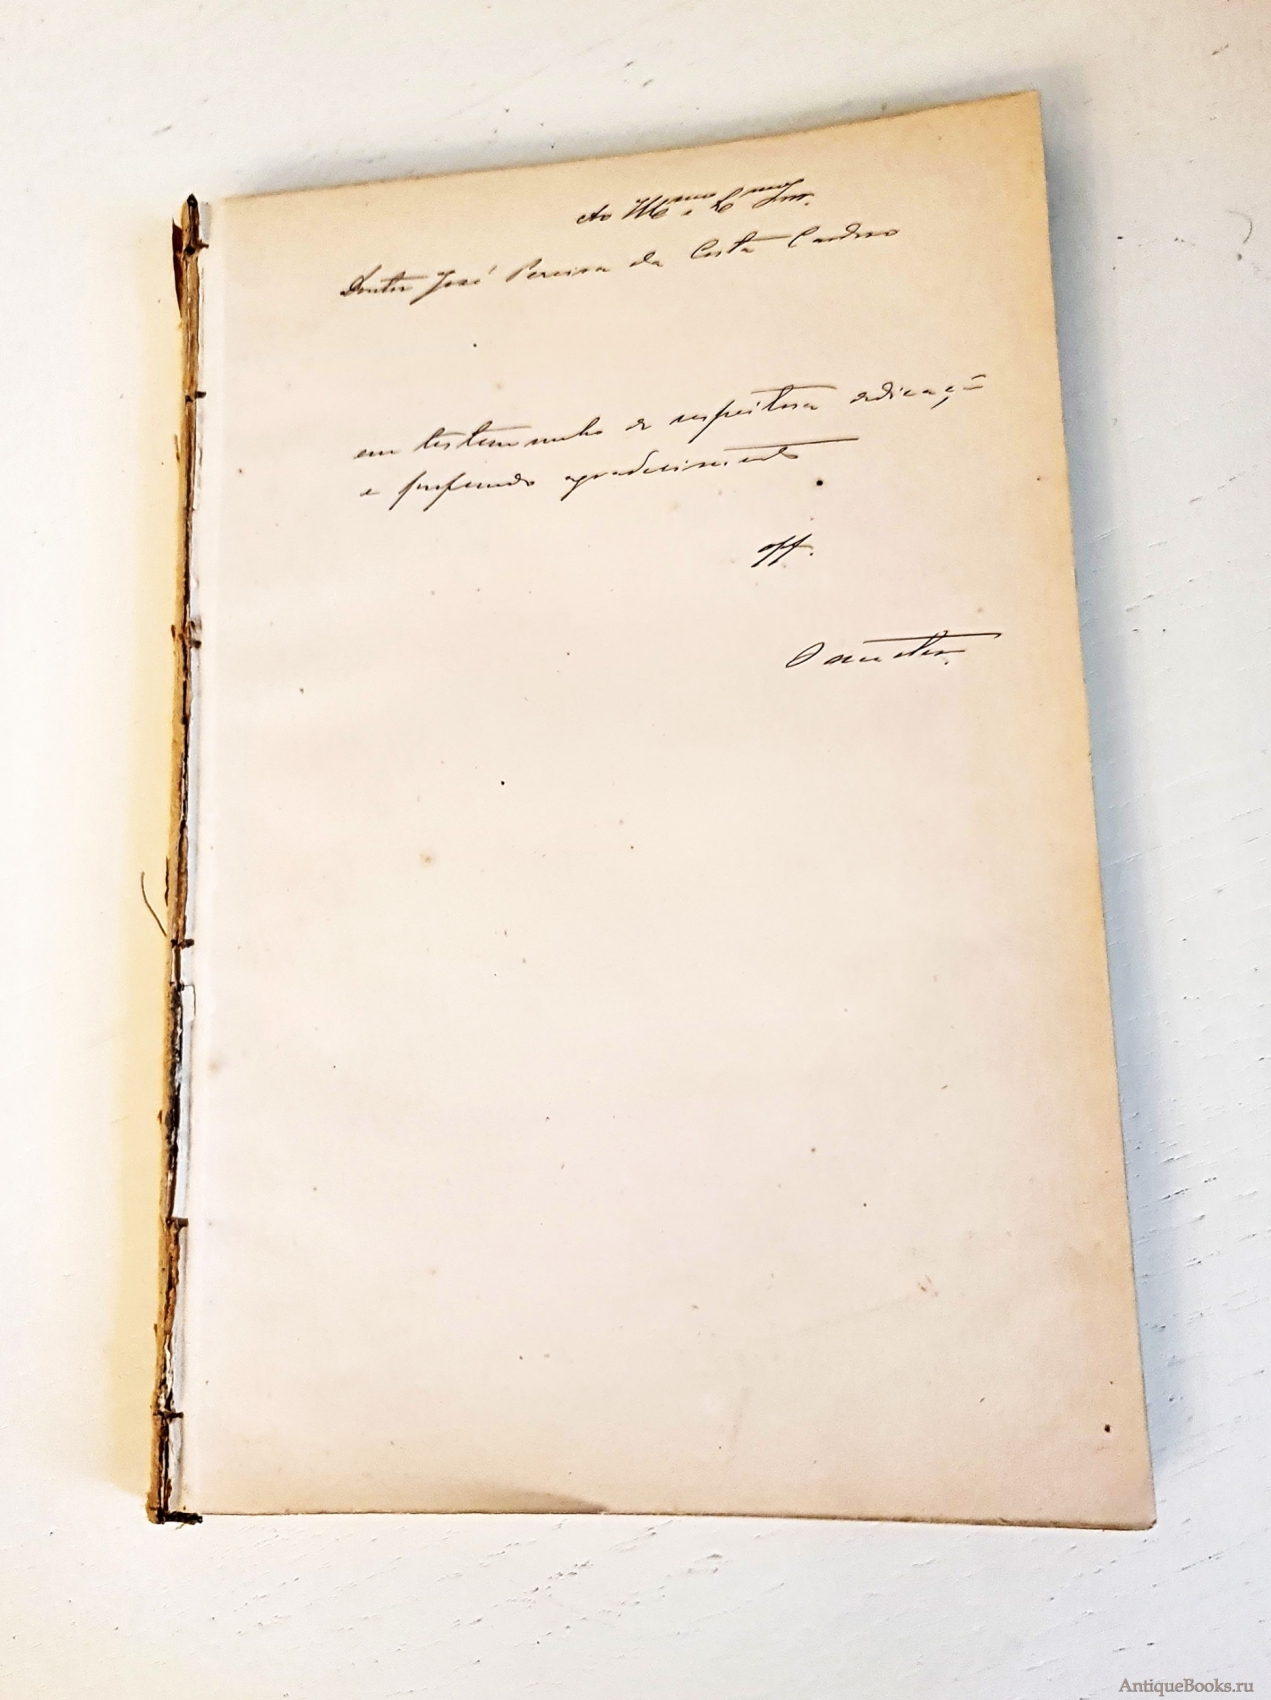 Ao Ill.mo e Ex.mo Snr.
Doutor José Pereira da Costa Cardoso
em testemunho de respeitosa dedicação
e profundo agradecimento
off.
O auctor.
AntiqueBooks.ru